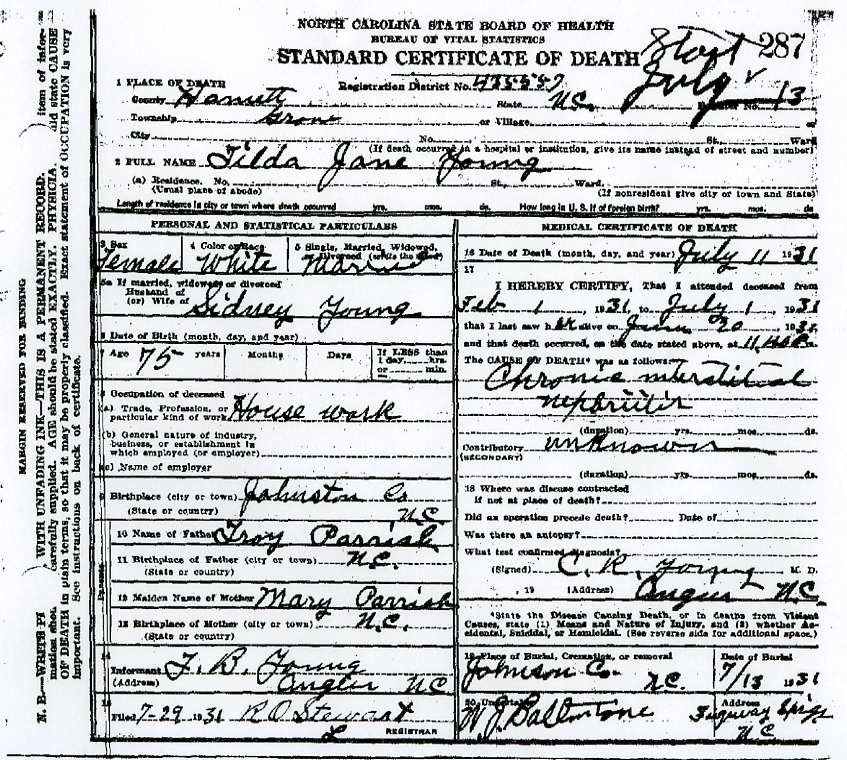 NORTH CAROLINA STATE BOARD OF HEALTH
BUREAU OF VITAL STATISTICS
STANDARD CERTIFICATE OF DEATH
287
July
1 PLACE OF DEATH
Registration District No.
13
County Harnett
State N.C.
Register No.
Township Grove
or Village
or
City
No.
St.,
Ward
(If death occurred in a hospital or institution, give its name instead of street and number)
2 FULL NAME Tilda Jane Young
(a) Residence. No.
St.,
Ward.
(Usual place of abode)
(If nonresident give city or town and State)
Length of residence in city or town where death occurred yrs. mos. ds. How long in U. S. if of foreign birth? yrs. mos. ds.
PERSONAL AND STATISTICAL PARTICULARS
3 Sex
4 Color or Race
5 Single, Married, Widowed,
or Divorced (write the word)
Female White Married
5a If married, widowed or divorced
Husband of
(or) Wife of Sidney Young
6 Date of Birth (month, day, and year)
7 Age 75 years
Months
Days
If LESS than
1 day, hrs.
or min.
8 Occupation of deceased
(a) Trade, Profession, or
particular kind of work House work
(b) General nature of industry,
business, or establishment in
which employed (or employer)
(c) Name of employer
9 Birthplace (city or town) Johnston Co
(State or country) N.C.
10 Name of Father Troy Parrish
11 Birthplace of Father (city or town) N.C.
(State or country)
12 Maiden Name of Mother Mary Parrish
13 Birthplace of Mother (city or town) N.C.
(State or country)
14
Informant J. B. Young
(Address) Angier N.C
15
Filed 7-29 1931 R O Stewart
REGISTRAR
MEDICAL CERTIFICATE OF DEATH
16 Date of Death (month, day, and year) July 11 1931
17
I HEREBY CERTIFY, That I attended deceased from
Feb 1, 1931, to July 1, 1931
that I last saw her alive on June 20, 1931,
and that death occurred, on the date stated above, at 11
The CAUSE OF DEATH* was as follows:
Chronic interstitial
nephritis
(duration) yrs. mos. ds.
Contributory unknown
(SECONDARY)
(duration) yrs. mos. ds.
18 Where was disease contracted
if not at place of death?
Did an operation precede death? Date of
Was there an autopsy?
What test confirmed diagnosis?
(Signed) C. R. Young M. D.
, 19 (Address) Angier N.C.
*State the Disease Causing Death, or in deaths from Violent
Causes, state (1) Means and Nature of Injury, and (2) whether Ac-
cidental, Suicidal, or Homicidal. (See reverse side for additional space.)
19 Place of Burial, Cremation, or removal
Johnson Co. N.C.
Date of Burial
7/13 1931
20 Undertaker
W J Ballentine
Address
Fuquay Springs
N C
MARGIN RESERVED FOR BINDING
WITH UNFADING INK—THIS IS A PERMANENT RECORD.
carefully supplied. AGE should be stated EXACTLY.
OF DEATH in plain terms, so that it may be properly classified. Exact statement of OCCUPATION is very
important. See instructions on back of certificate.